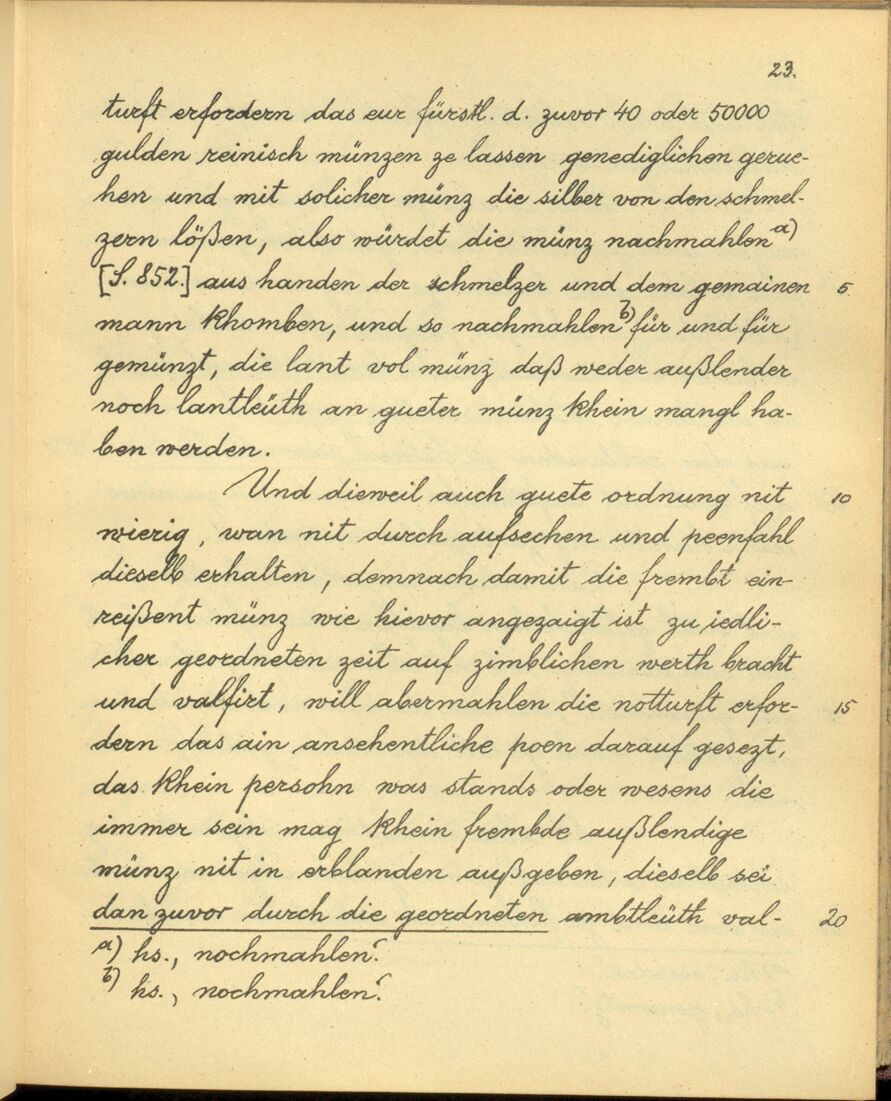 23.
turft erfordern das eur fürstl. d. zuvor 40 oder 50000
gulden reinisch münzen ze lassen genediglichen gerue-
hen und mit solicher münz die silber von den schmel-
zern lößen, also würdet die münz nachmahlen a)
[S. 852.] aus handen der schmelzer und dem gemainen 5
mann khomben, und so nachmahlen b) für und für
gemünzt, die lant vol münz daß weder außlender
noch lantleüth an gueter münz khein mangl ha-
ben werden.
Und dieweil auch guete ordnung nit 10
wierig, wan nit durch aufsechen und peenfahl
dieselb erhalten, demnach damit die frembt ein-
reißent münz wie hievor angezaigt ist zu iedli-
cher geordneten zeit auf zimblichen werth bracht
und valfirt, will abermahlen die notturft erfor- 15
dern das ain ansehentliche poen darauf gesezt,
das khein persohn was stands oder wesens die
immer sein mag khein frembde außlendige
münz nit in erblanden außgeben, dieselb sei
dan zuvor durch die geordneten ambtleüth val- 20
a) hs., nochmahlen?
b) hs., nochmahlen?